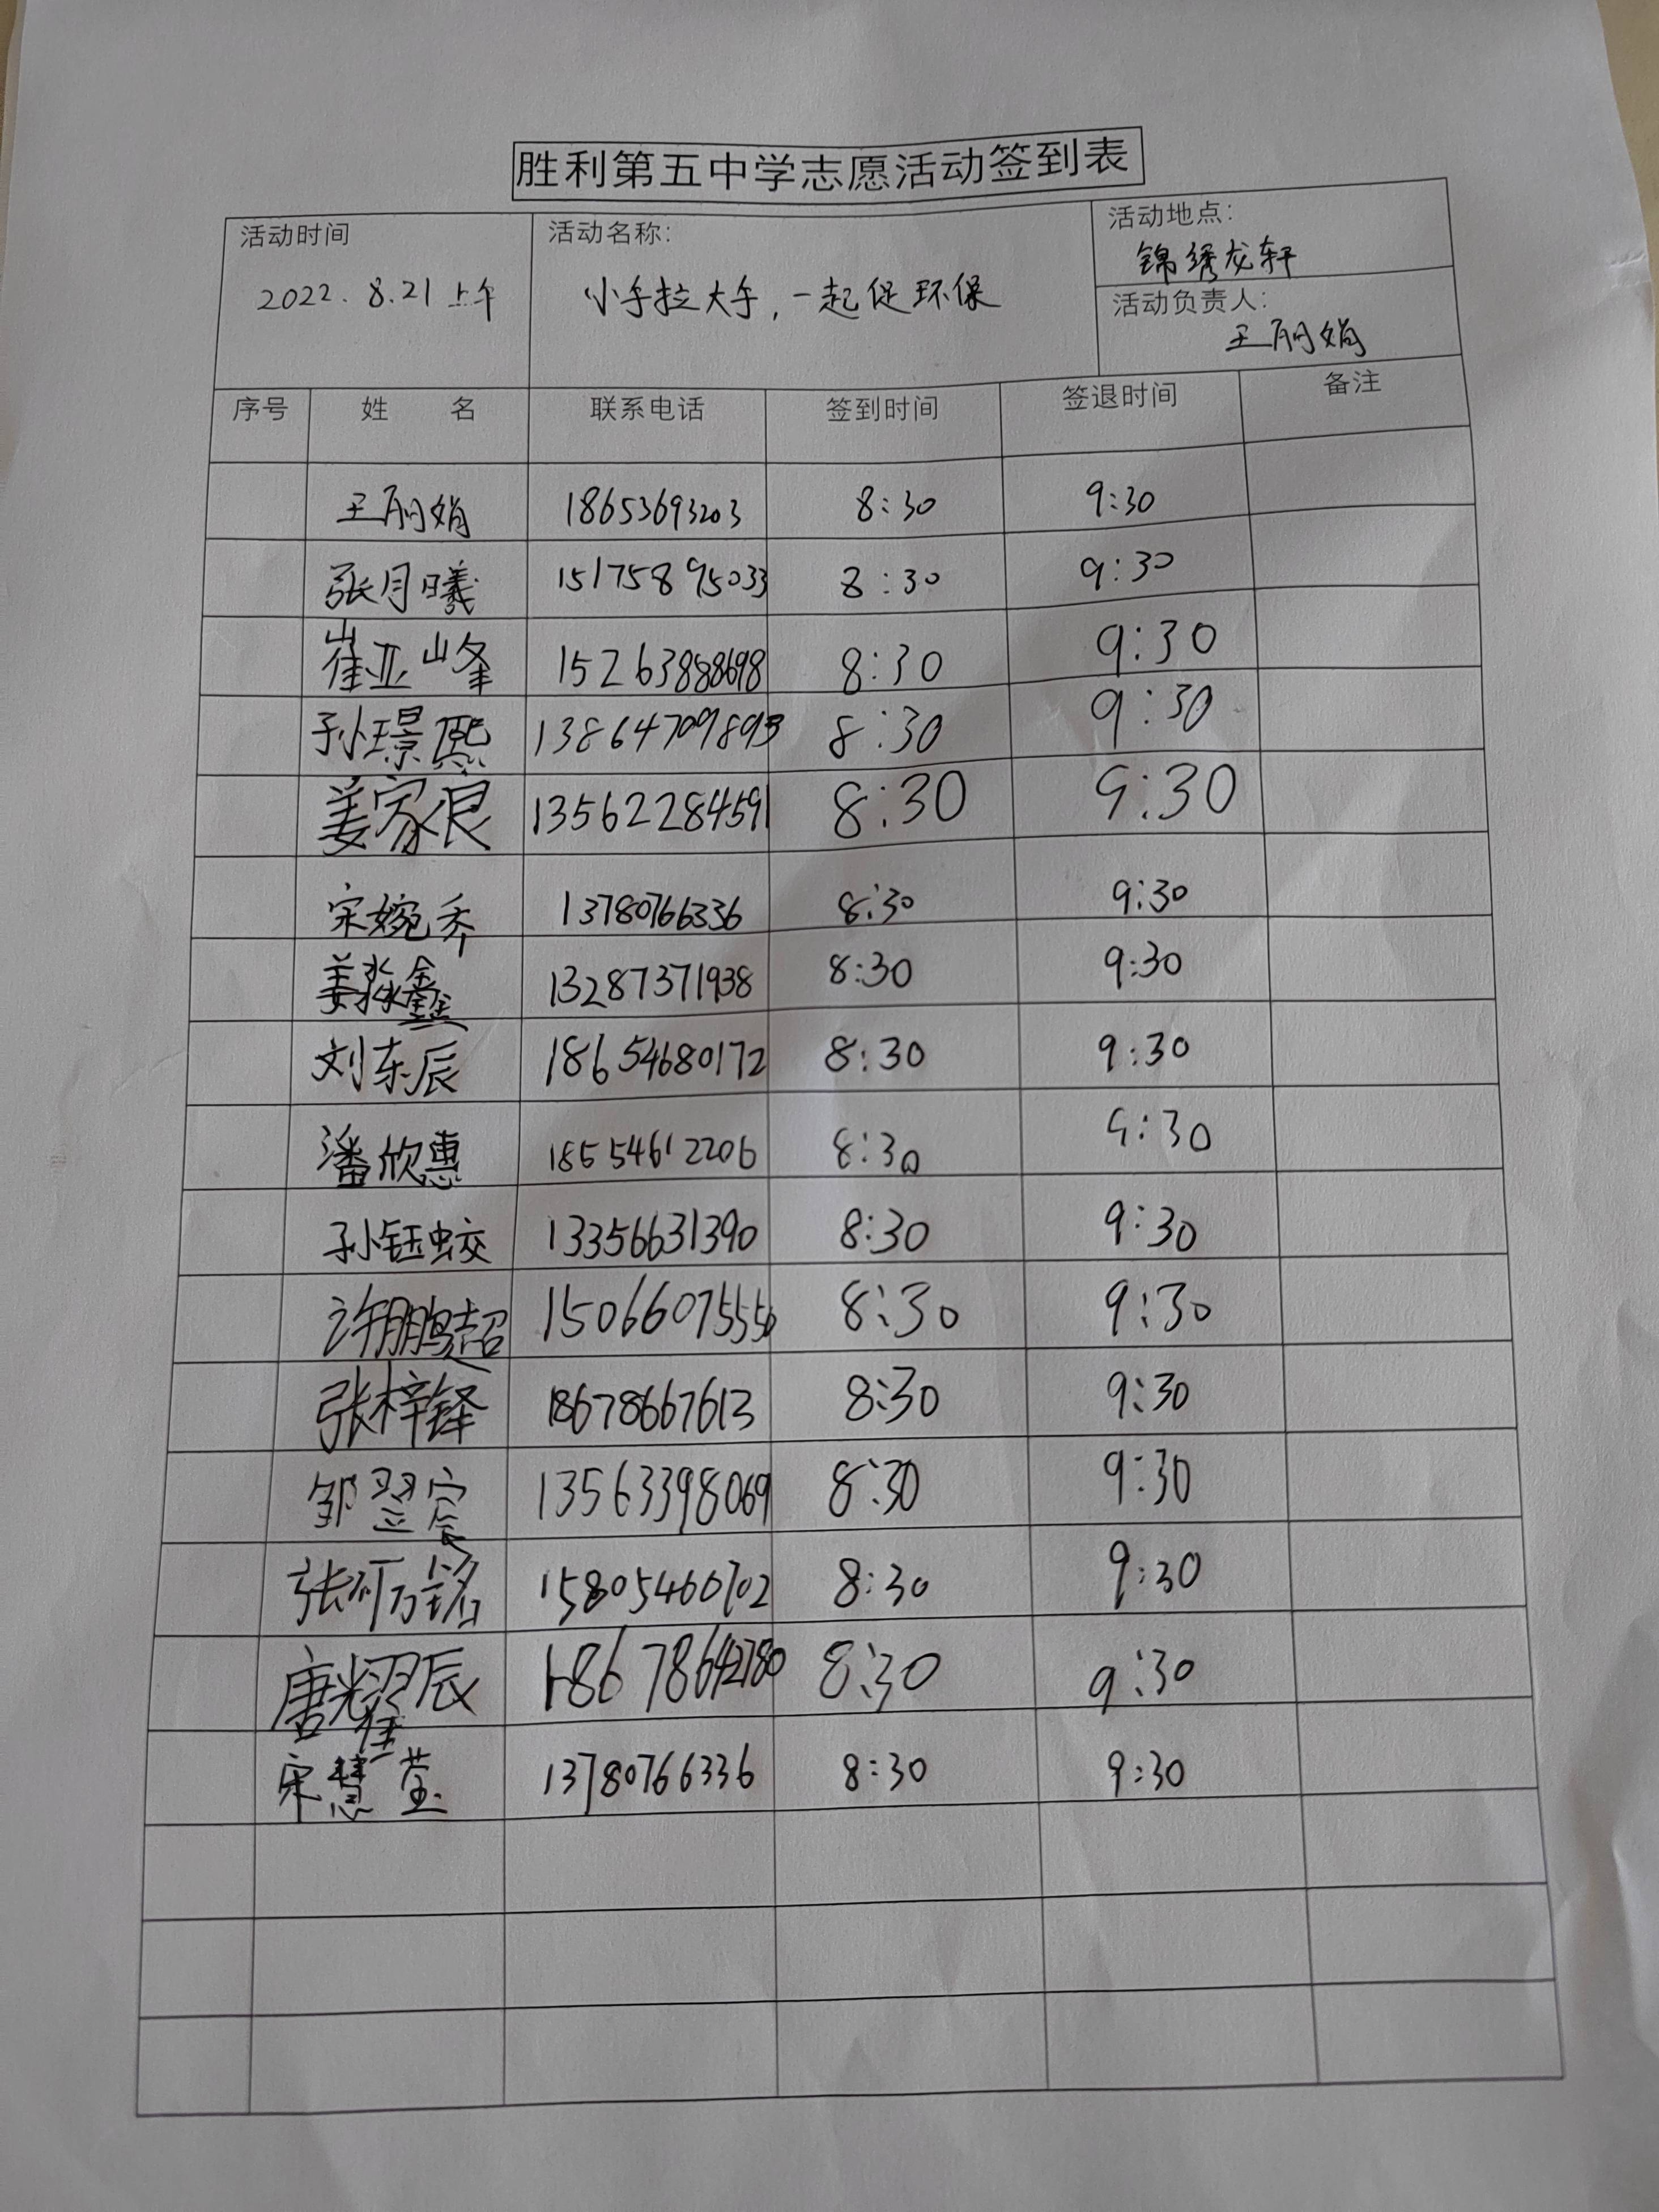 胜利第五中学志愿活动签到表
活动时间 活动名称: 活动地点:
2022.8.21上午 小手拉大手,一起促环保 锦绣龙轩
活动负责人:
王丽娟
序号 姓 名 联系电话 签到时间 签退时间 备注
王丽娟 18653693203 8:30 9:30
张月曦 15175895033 8:30 9:30
崔亚峰 15263888698 8:30 9:30
孙璟熙 13864709893 8:30 9:30
姜家良 13562284591 8:30 9:30
宋婉乔 13780766336 8:30 9:30
姜淼鑫 13287371938 8:30 9:30
刘东辰 18654680172 8:30 9:30
潘欣惠 18554612206 8:30 9:30
孙钰蛟 13356631390 8:30 9:30
许鹏超 15066075556 8:30 9:30
张梓铎 18678667613 8:30 9:30
邹翌宸 13563398069 8:30 9:30
张 铭 15805460702 8:30 9:30
唐耀辰 18678642780 8:30 9:30
宋慧莹 13780766336 8:30 9:30